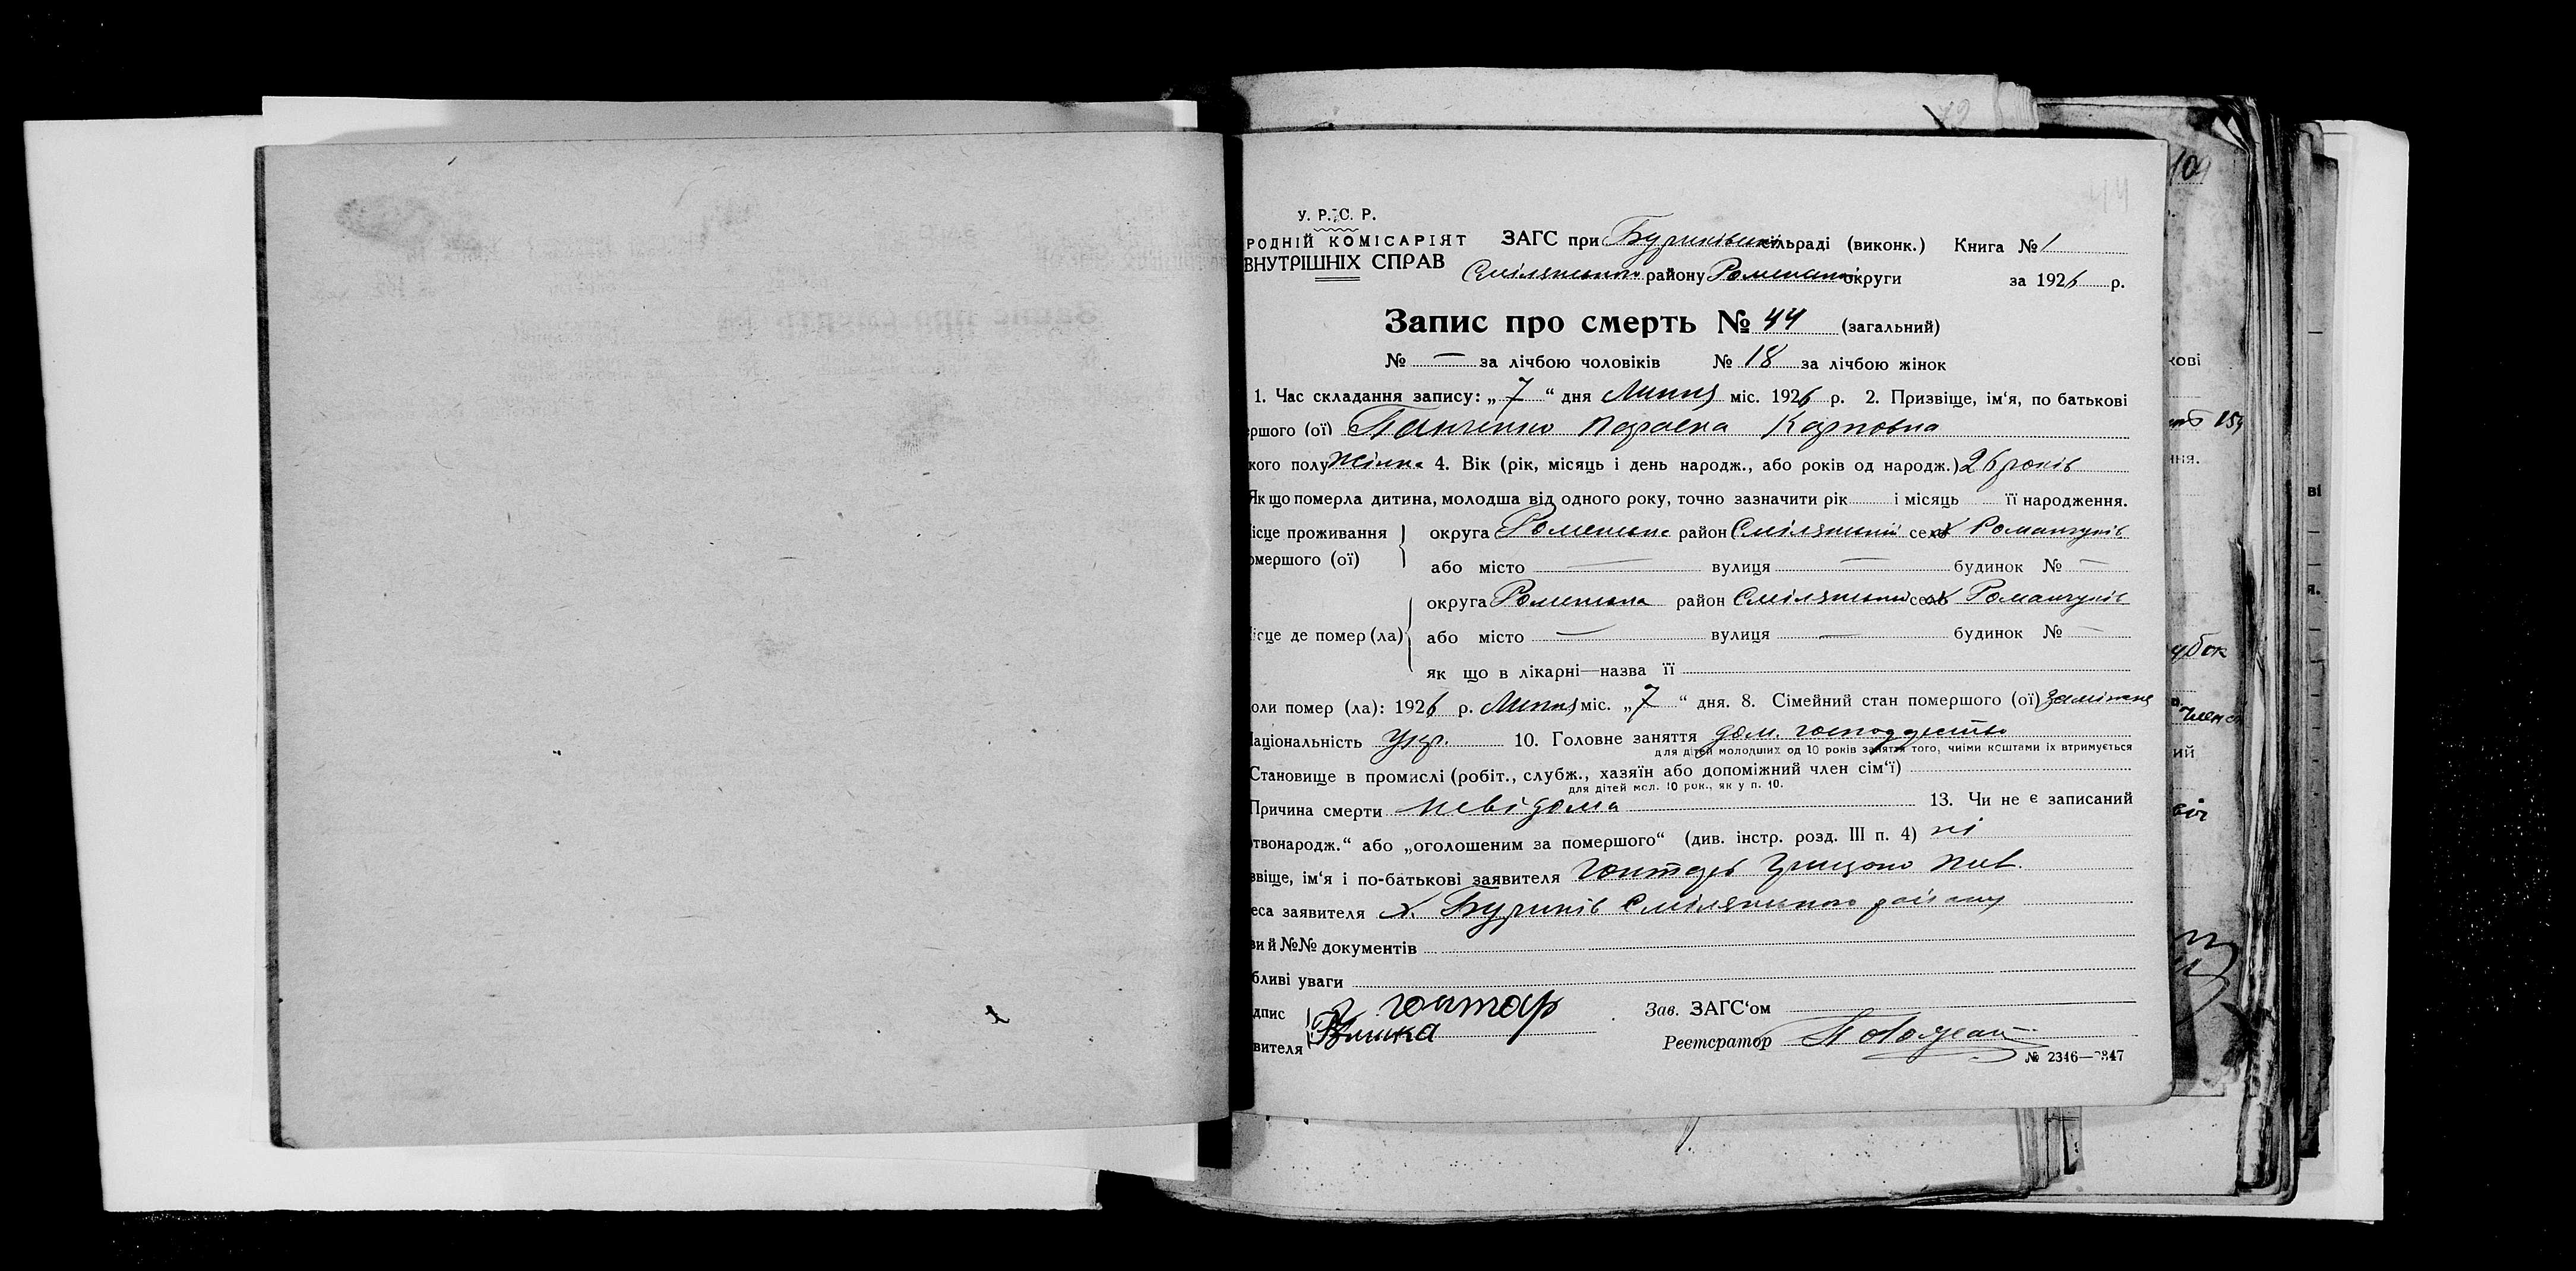 44
У. Р. С. Р.
РОДНІЙ КОМІСАРІЯТ ЗАГС при Буриківській сільраді (виконк.) Книга № 1
ВНУТРІШНІХ СПРАВ Смілянського району Роменської округи за 1926 р.
Запис про смерть № 44 (загальний)
№ — за лічбою чоловіків № 18 за лічбою жінок
1. Час складання запису: „7“ дня Липня міс. 1926 р. 2. Призвіще, ім‘я, по батькові
ршого (ої) Панченко Параска Карповна
кого полу Жінка 4. Вік (рік, місяць і день народж., або років од народж.) 26 років
Як що померла дитина, молодша від одного року, точно зазначити рік і місяць її народження.
ісце проживання округа Роменська район Смілянський село х Романчуків
омершого (ої)
або місто — вулиця — будинок № —
округа Роменська район Смілянський село х Романчуків
ісце де помер (ла) або місто — вулиця — будинок № —
як що в лікарні—назва її
оли помер (ла): 1926 р. Липня міс. „7“ дня. 8. Сімейний стан помершого (ої) Заміжня
аціональність Укр. 10. Головне заняття дом. господарство
для дітей молодших од 10 років заняття того, чиїми коштами їх втримується
Становище в промислі (робіт., служб., хазяїн або допоміжний член сім‘ї)
для дітей мол. 10 рок., як у п. 10.
Причина смерти невідома 13. Чи не є записаний
ртвонародж.“ або „оголошеним за помершого“ (див. інстр. розд. III п. 4) ні
звіще, ім‘я і по-батькові заявителя Гонтарь Грицько
еса заявителя х. Буриків Смілянського району
ви й №№ документів
бливі уваги
дпис Г Гонтар Зав. ЗАГС‘ом
вителя Реєстратор
№ 2346—2347
104
кові
ння.
ві
я.
ий